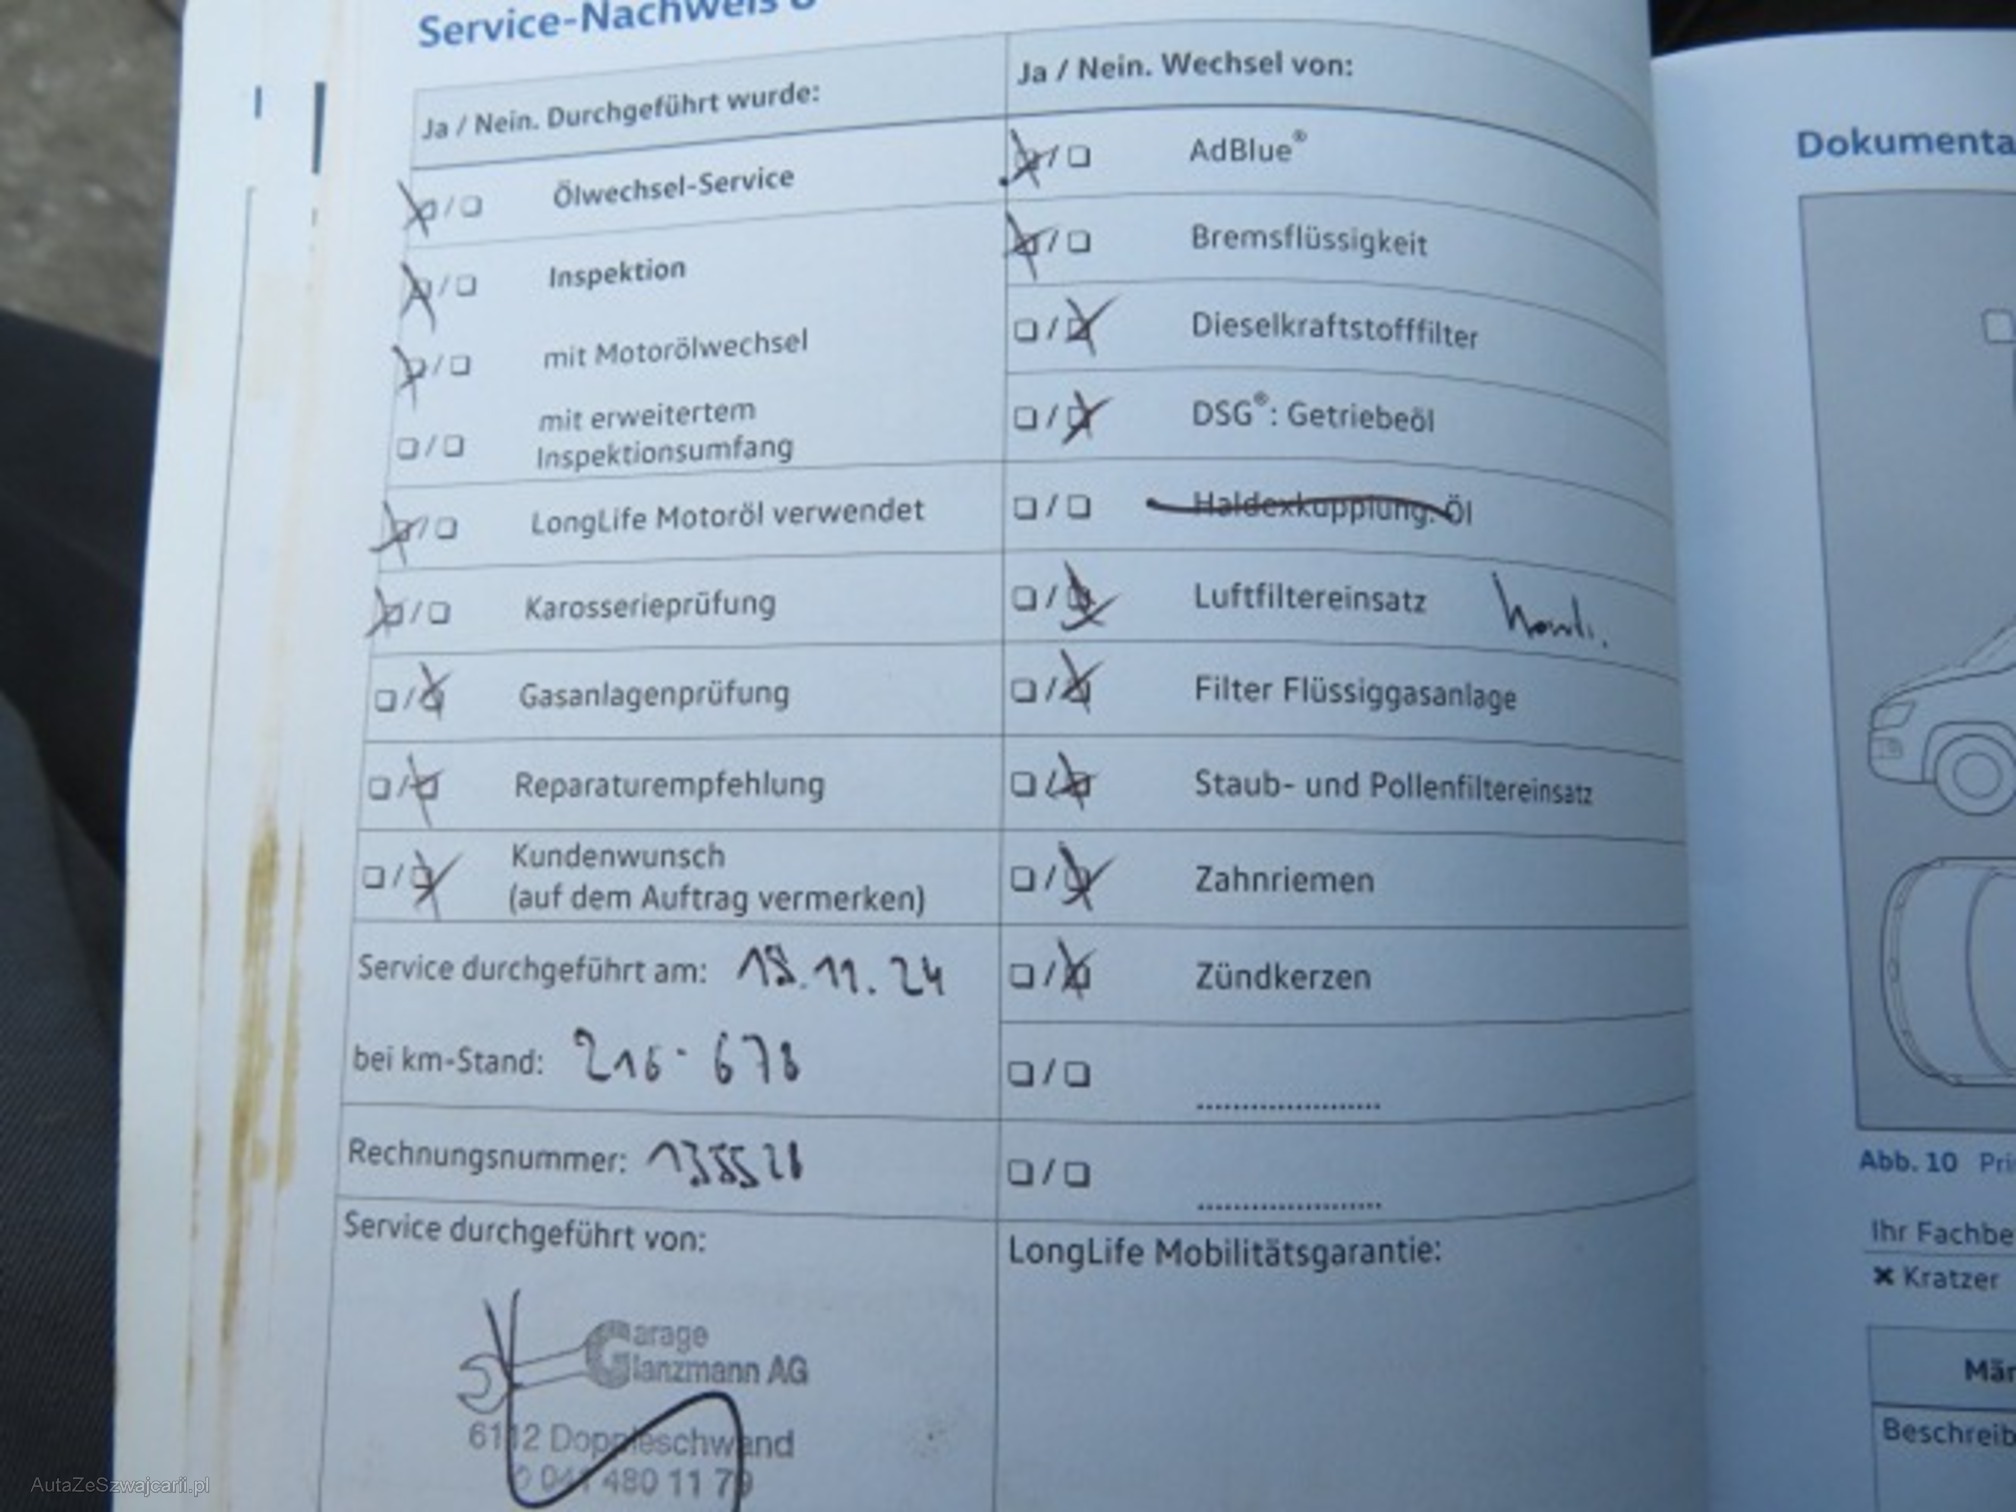 Service-Nachweis
Ja / Nein. Durchgeführt wurde:
Ölwechsel-Service
Inspektion
mit Motorölwechsel
mit erweitertem
Inspektionsumfang
LongLife Motoröl verwendet
Karosserieprüfung
Gasanlagenprüfung
Reparaturempfehlung
Kundenwunsch
(auf dem Auftrag vermerken)
Service durchgeführt am: 18.11.24
bei km-Stand: 216 678
Rechnungsnummer:
Service durchgeführt von:
Garage
Glanzmann AG
6112 Doppleschwand
041 480 11 79
Ja / Nein. Wechsel von:
AdBlue®
Bremsflüssigkeit
Dieselkraftstofffilter
DSG®: Getriebeöl
Haldexkupplung: Öl
Luftfiltereinsatz
Filter Flüssiggasanlage
Staub- und Pollenfiltereinsatz
Zahnriemen
Zündkerzen
LongLife Mobilitätsgarantie:
Dokumenta
Abb. 10 Pri
Ihr Fachbe
✖ Kratzer
Män
Beschreib
AutaZeSzwajcarii.pl